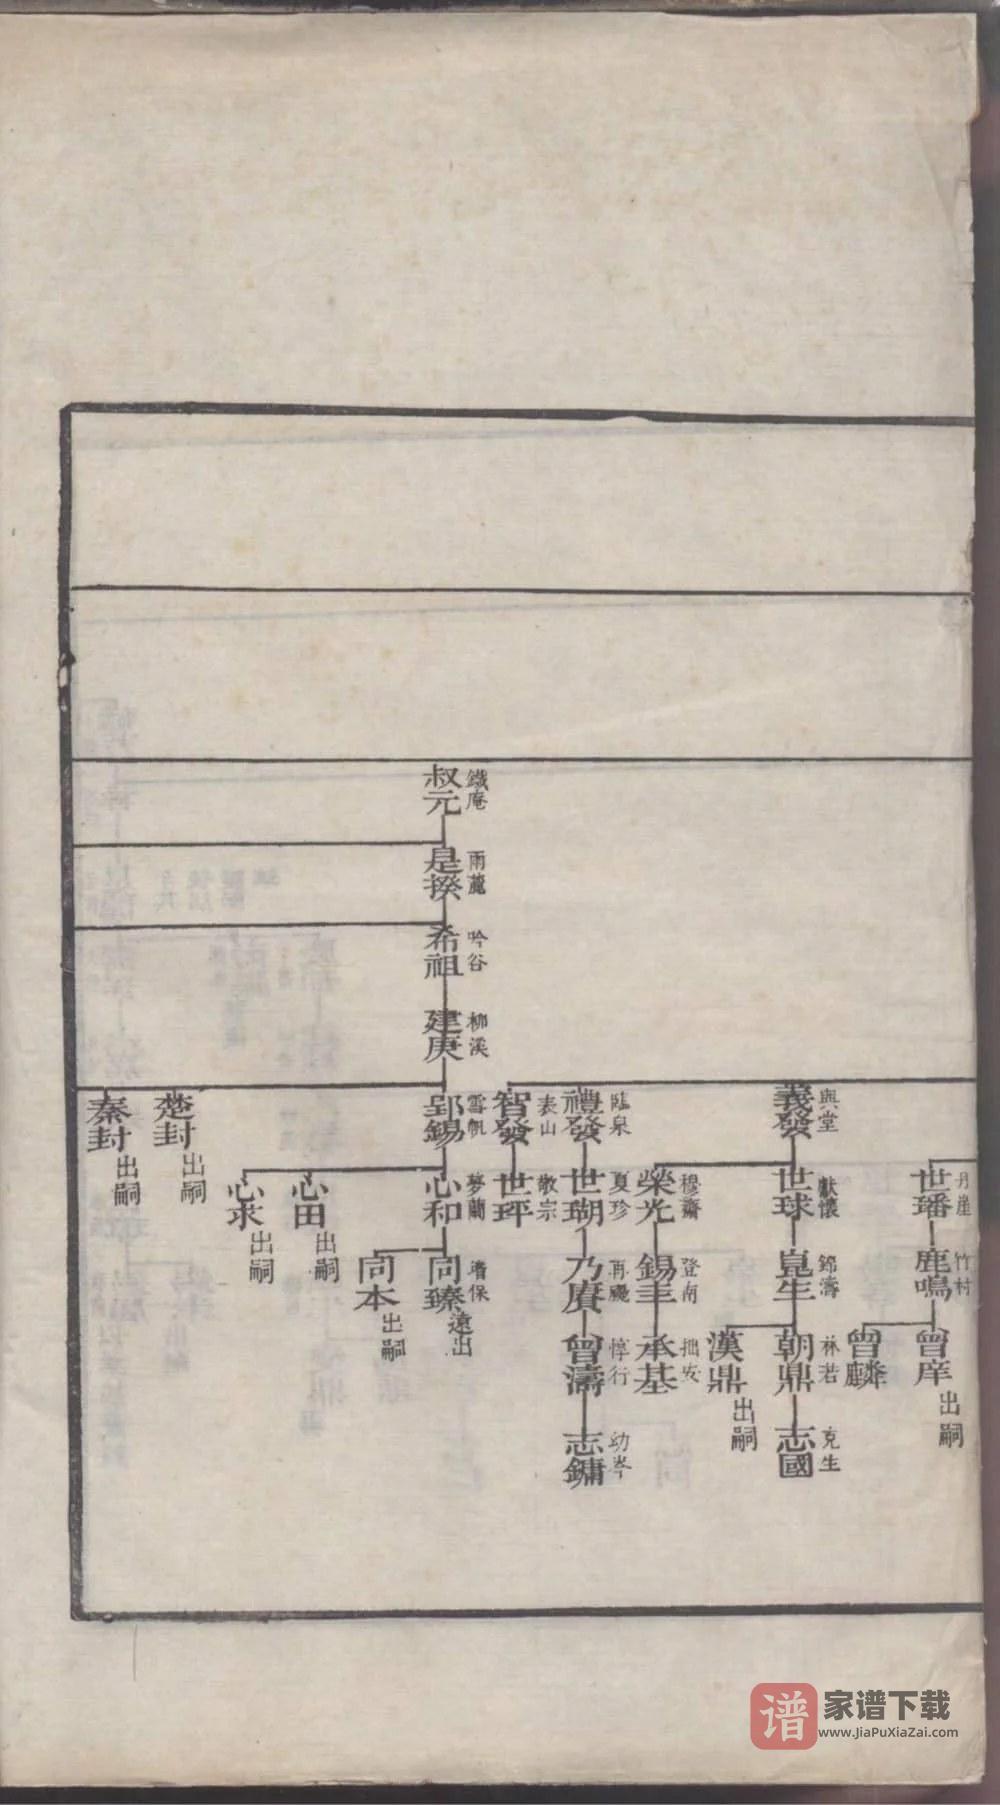 丹崖
世璠
竹村
鹿鳴
曾庠
出嗣
曾麟
與堂
義發
獻懷
世球
錦濤
崑生
林若
朝鼎
克生
志國
漢鼎
出嗣
穆齋
榮光
登南
錫圭
拙安
承基
臨泉
禮發
夏珍
世瑚
再颺
乃賡
惇行
曾濤
幼岑
志鏞
表山
智發
敬宗
世坪
鐵庵
叔元
雨蓏
是揆
吟谷
希祖
柳溪
建庚
雪帆
郢錫
夢蘭
心和
同臻
遠出
同本
出嗣
心田
出嗣
心求
出嗣
楚封
出嗣
秦封
出嗣
谱
家谱下载
www.JiaPuXiaZai.com